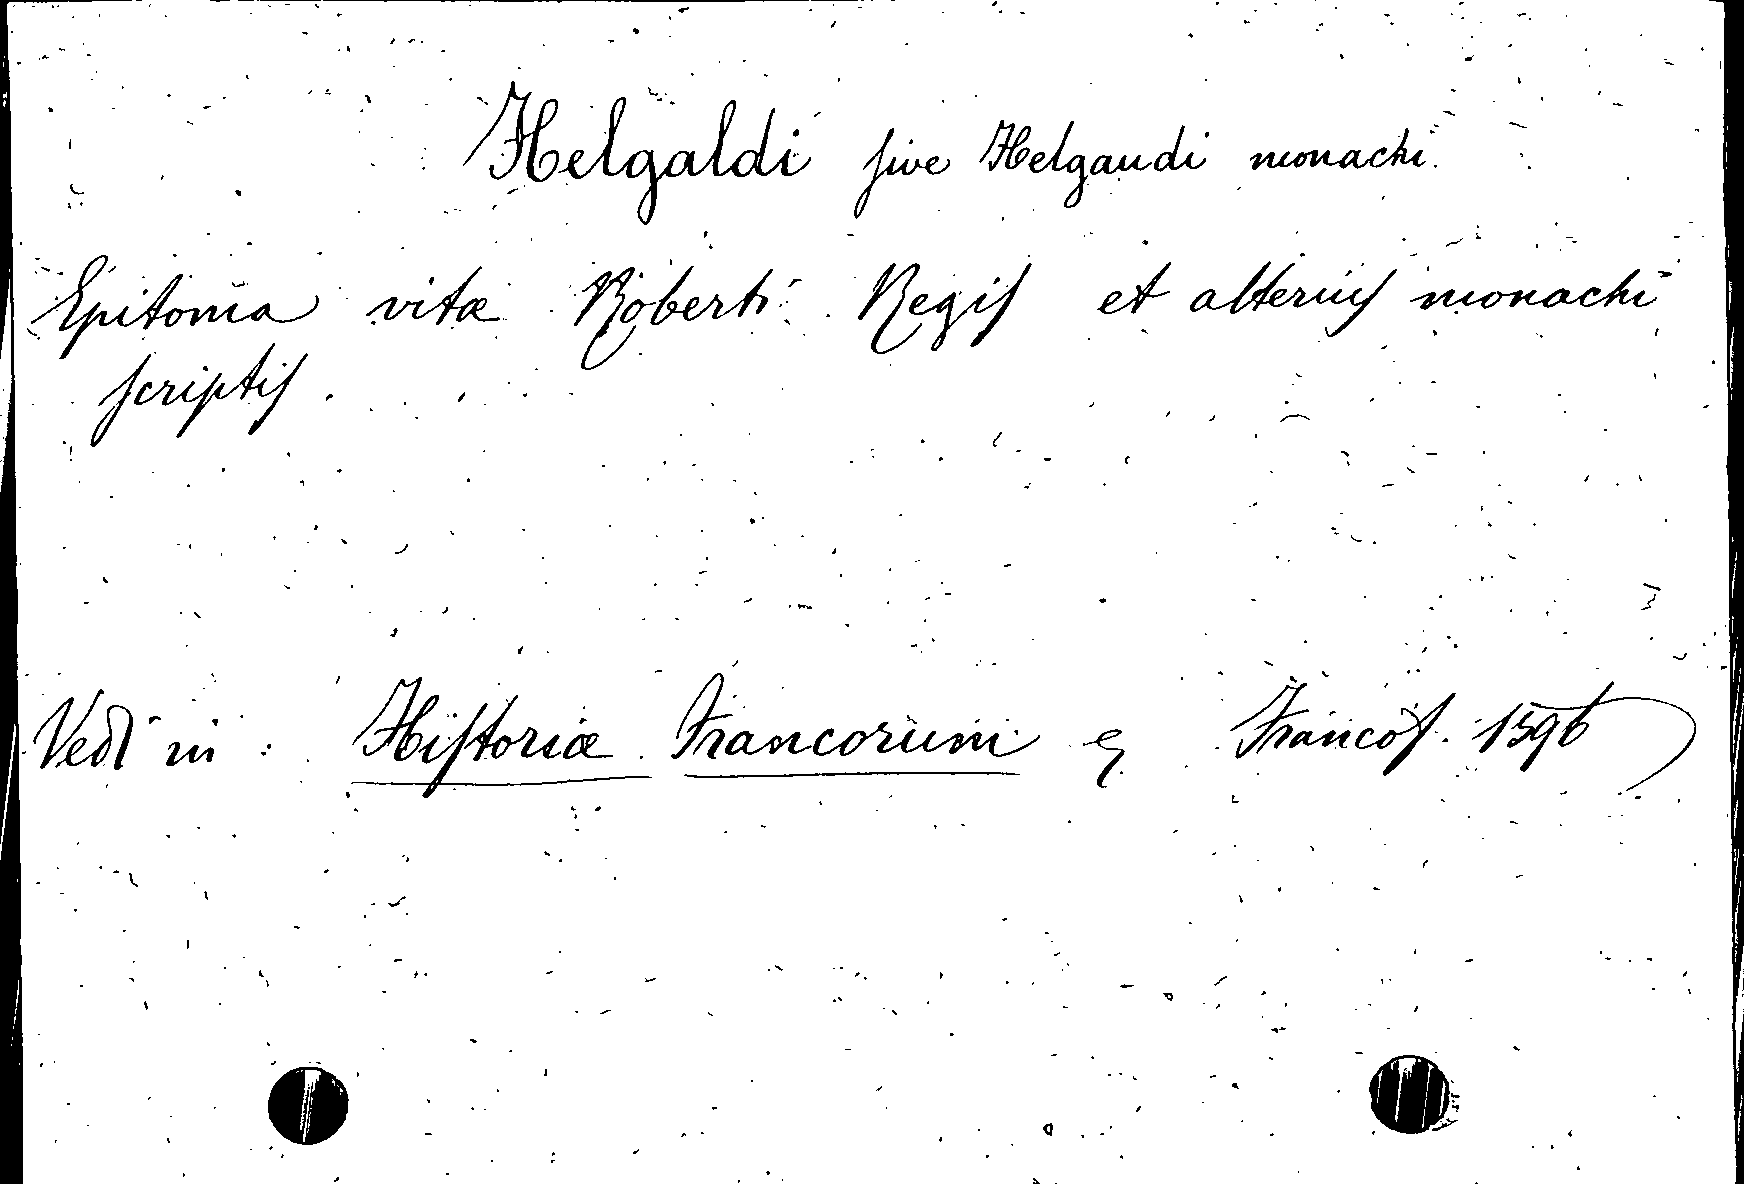 Helgaldi ſive Helgaudi monachi.
Epitoma vitæ Roberti Regiſ et alteriuſ monachi
ſcriptiſ.
Vedi in : Hiſtoriæ Francorum & Francof. 1596